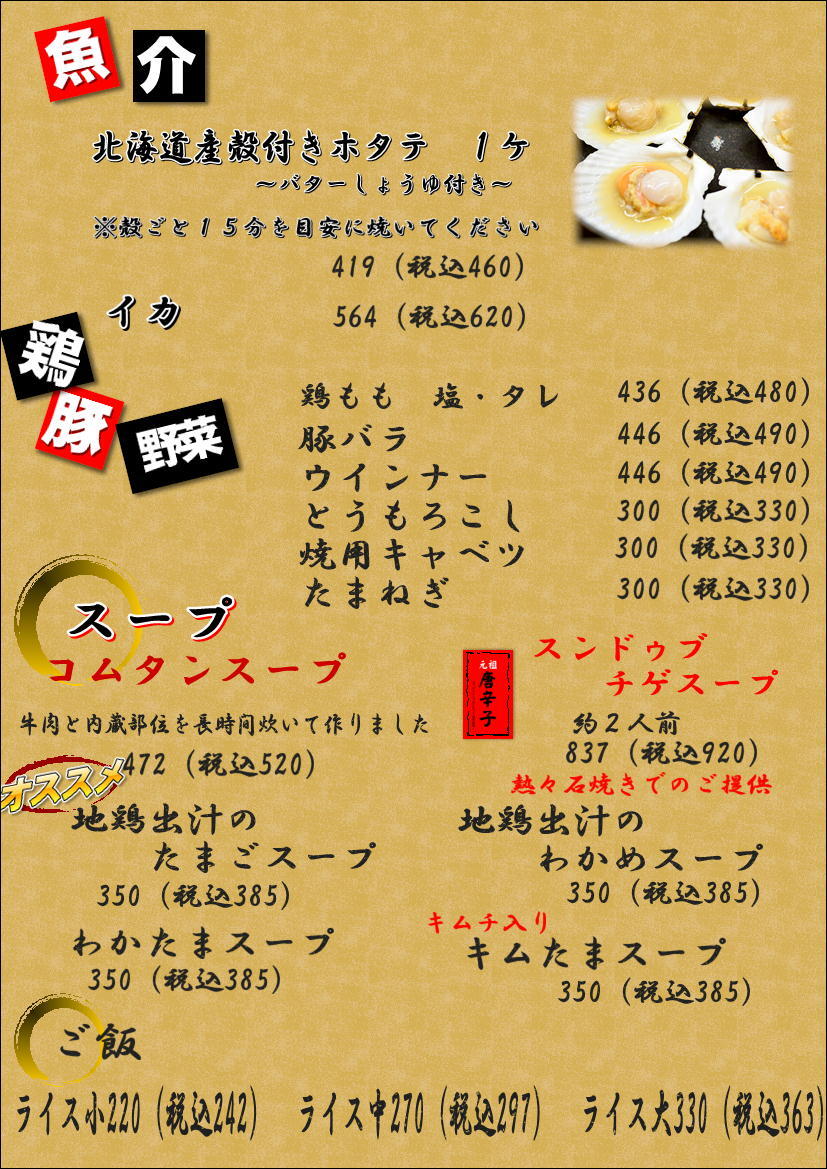 魚介
北海道産殻付きホタテ　１ケ
～バターしょうゆ付き～
※殻ごと１５分を目安に焼いてください
419（税込460）
イカ　564（税込620）
鶏
豚
野菜
鶏もも　塩・タレ　436（税込480）
豚バラ　446（税込490）
ウインナー　446（税込490）
とうもろこし　300（税込330）
焼用キャベツ　300（税込330）
たまねぎ　300（税込330）
スープ
コムタンスープ
牛肉と内蔵部位を長時間炊いて作りました
472（税込520）
元祖
唐辛子
スンドゥブ
チゲスープ
約２人前
837（税込920）
熱々石焼きでのご提供
オススメ
地鶏出汁の
たまごスープ
350（税込385）
地鶏出汁の
わかめスープ
350（税込385）
わかたまスープ
350（税込385）
キムチ入り
キムたまスープ
350（税込385）
ご飯
ライス小220（税込242）　ライス中270（税込297）　ライス大330（税込363）